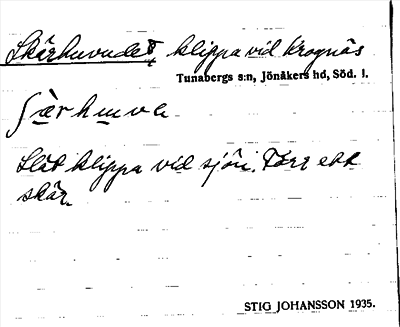 Skärhuvudet, klippa vid Krognäs
Tunabergs s:n, Jönåkers hd, Söd. l.
ʃærhuve
Slät klippa vid sjön. Förr ett
skär.
STIG JOHANSSON 1935.